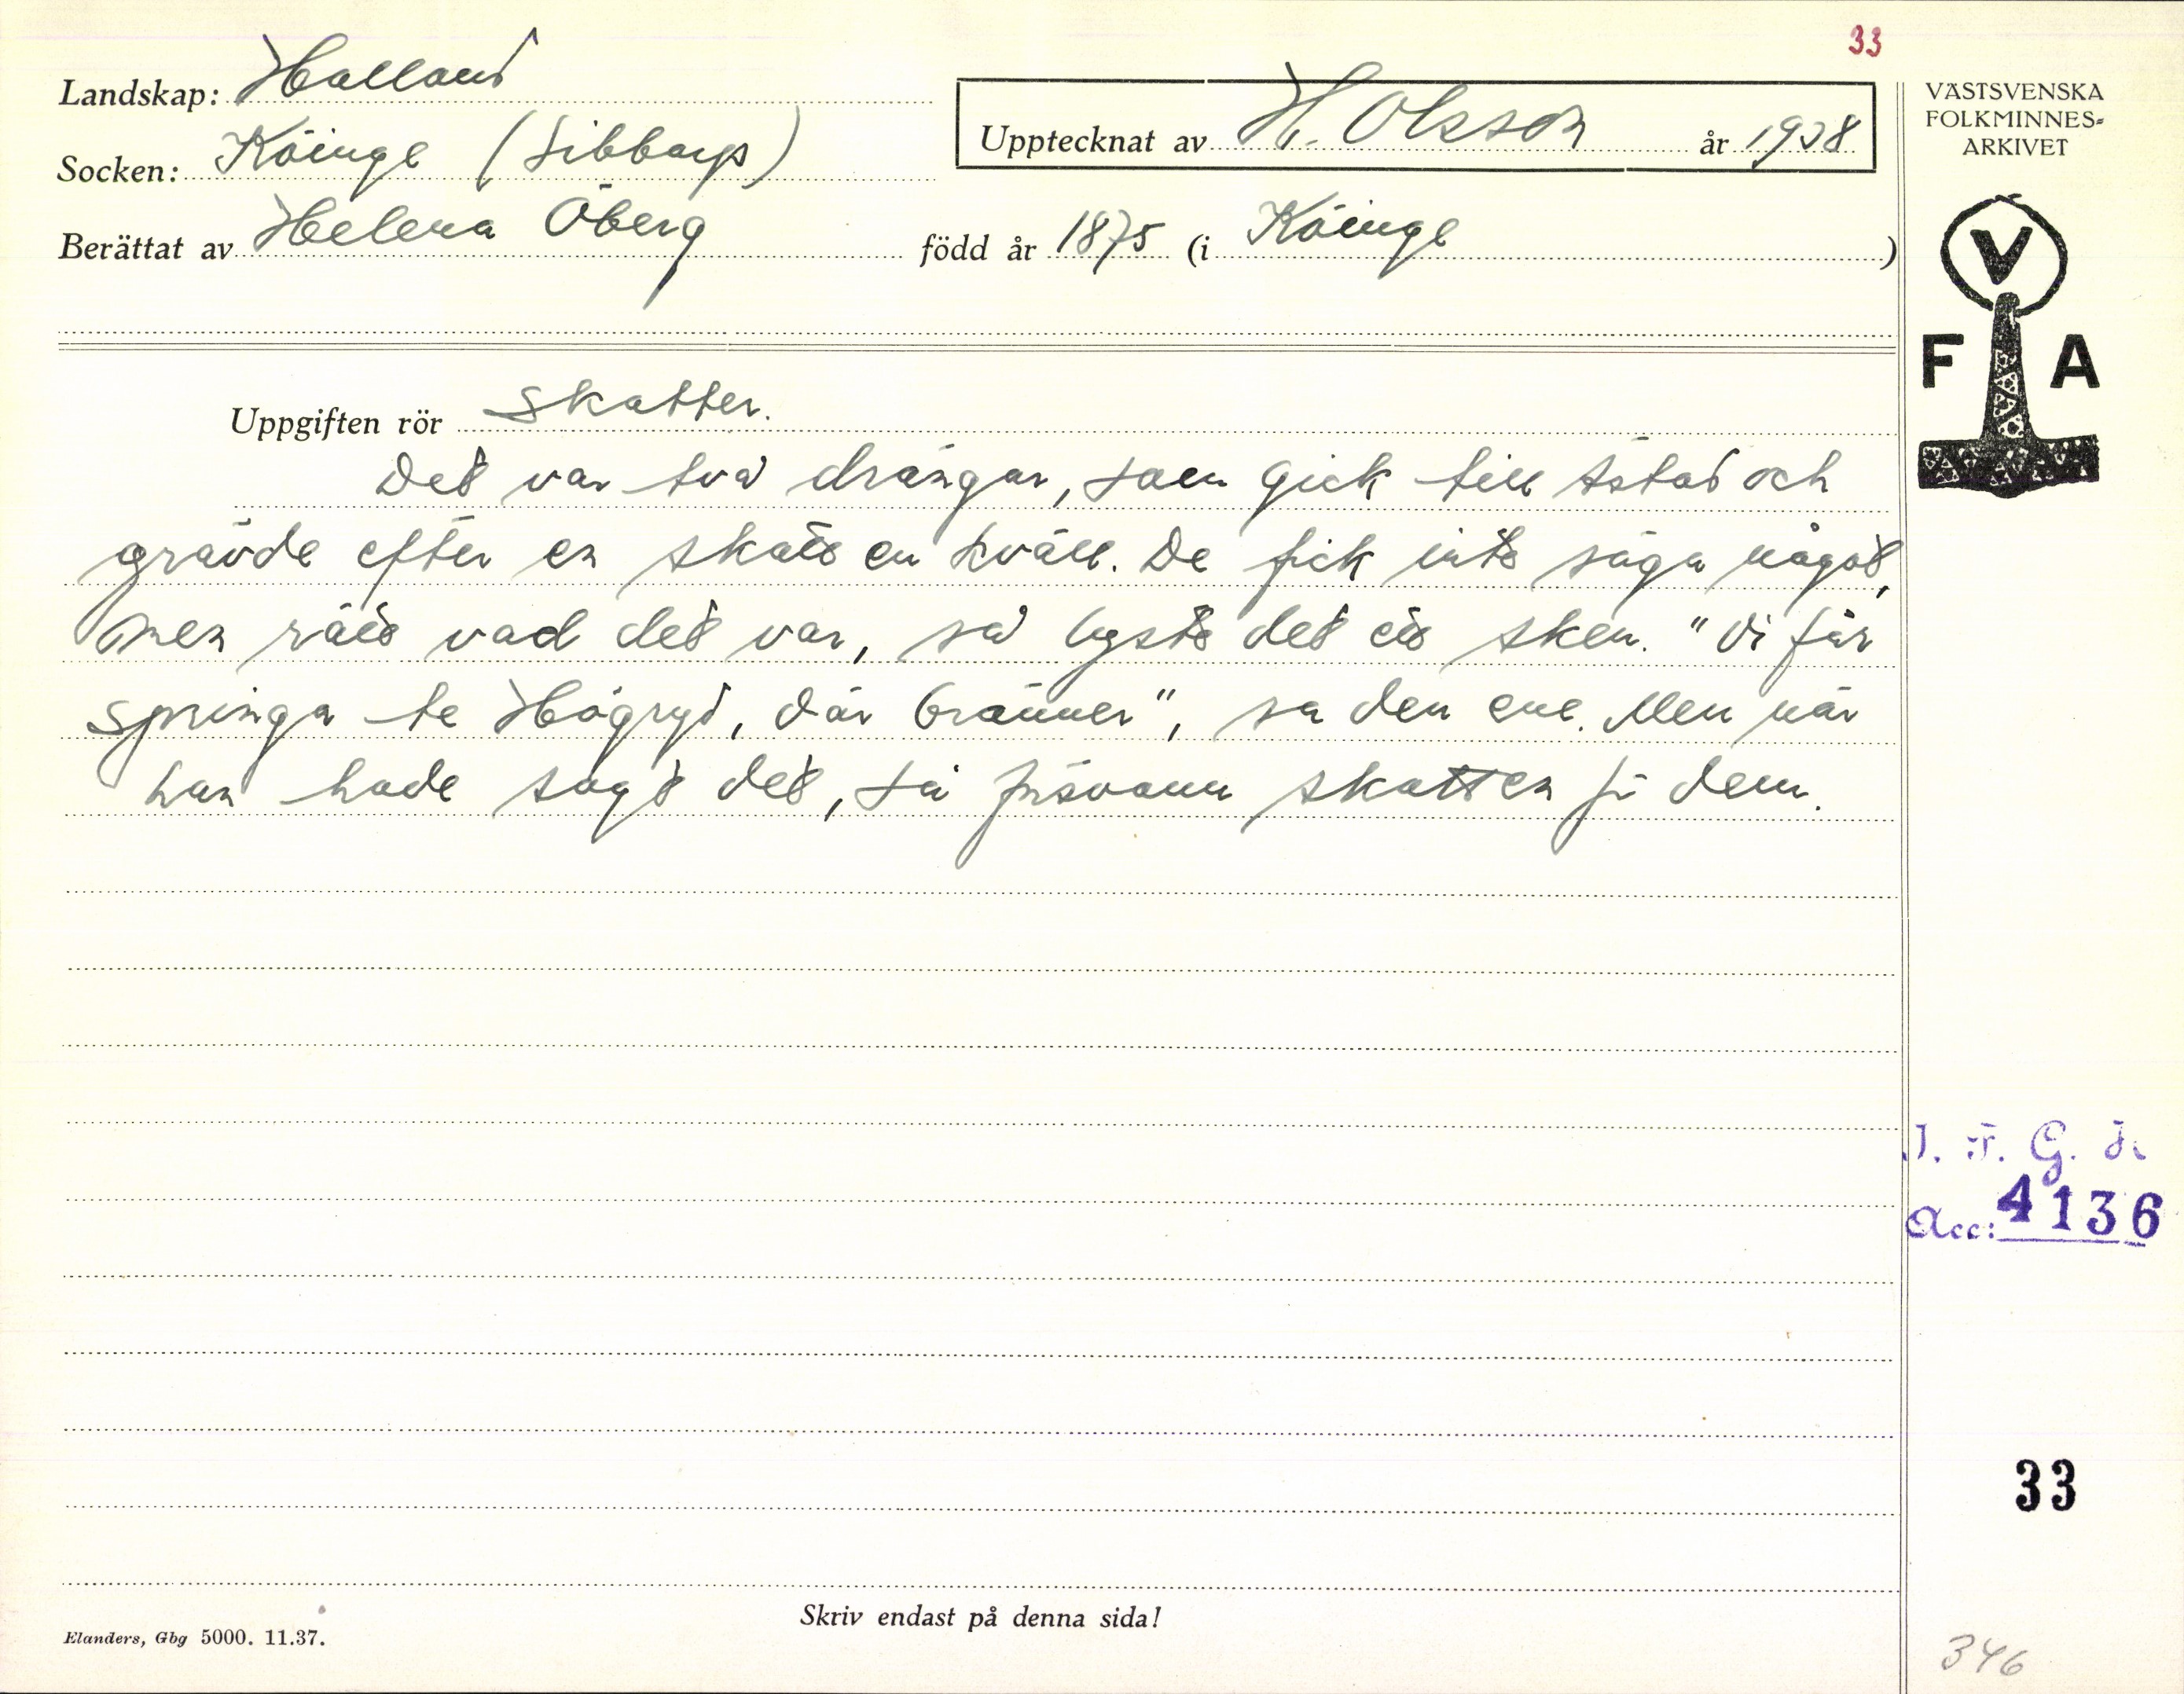 33
Landskap: Halland
Upptecknat av H. Olsson år 1938
Socken: Köinge (Sibbarp)
Berättat av Helena Öberg född år 1875 (i Köinge)
VÄSTSVENSKA
FOLKMINNES-
ARKIVET
V
F A
Uppgiften rör Skatter.
Det var två drängar, som gick till Ästad och
grävde efter en skatt en kväll. De fick inte säga något,
men rätt vad det var, så lyste det ett sken. "Vi får
springa te Högryd, där bränner", sa den ene. Men när
han hade sagt det, så försvann skatten för dem.
I. F. G. H.
Acc: 4136
33
Skriv endast på denna sida!
Elanders, Gbg 5000. 11.37.
346